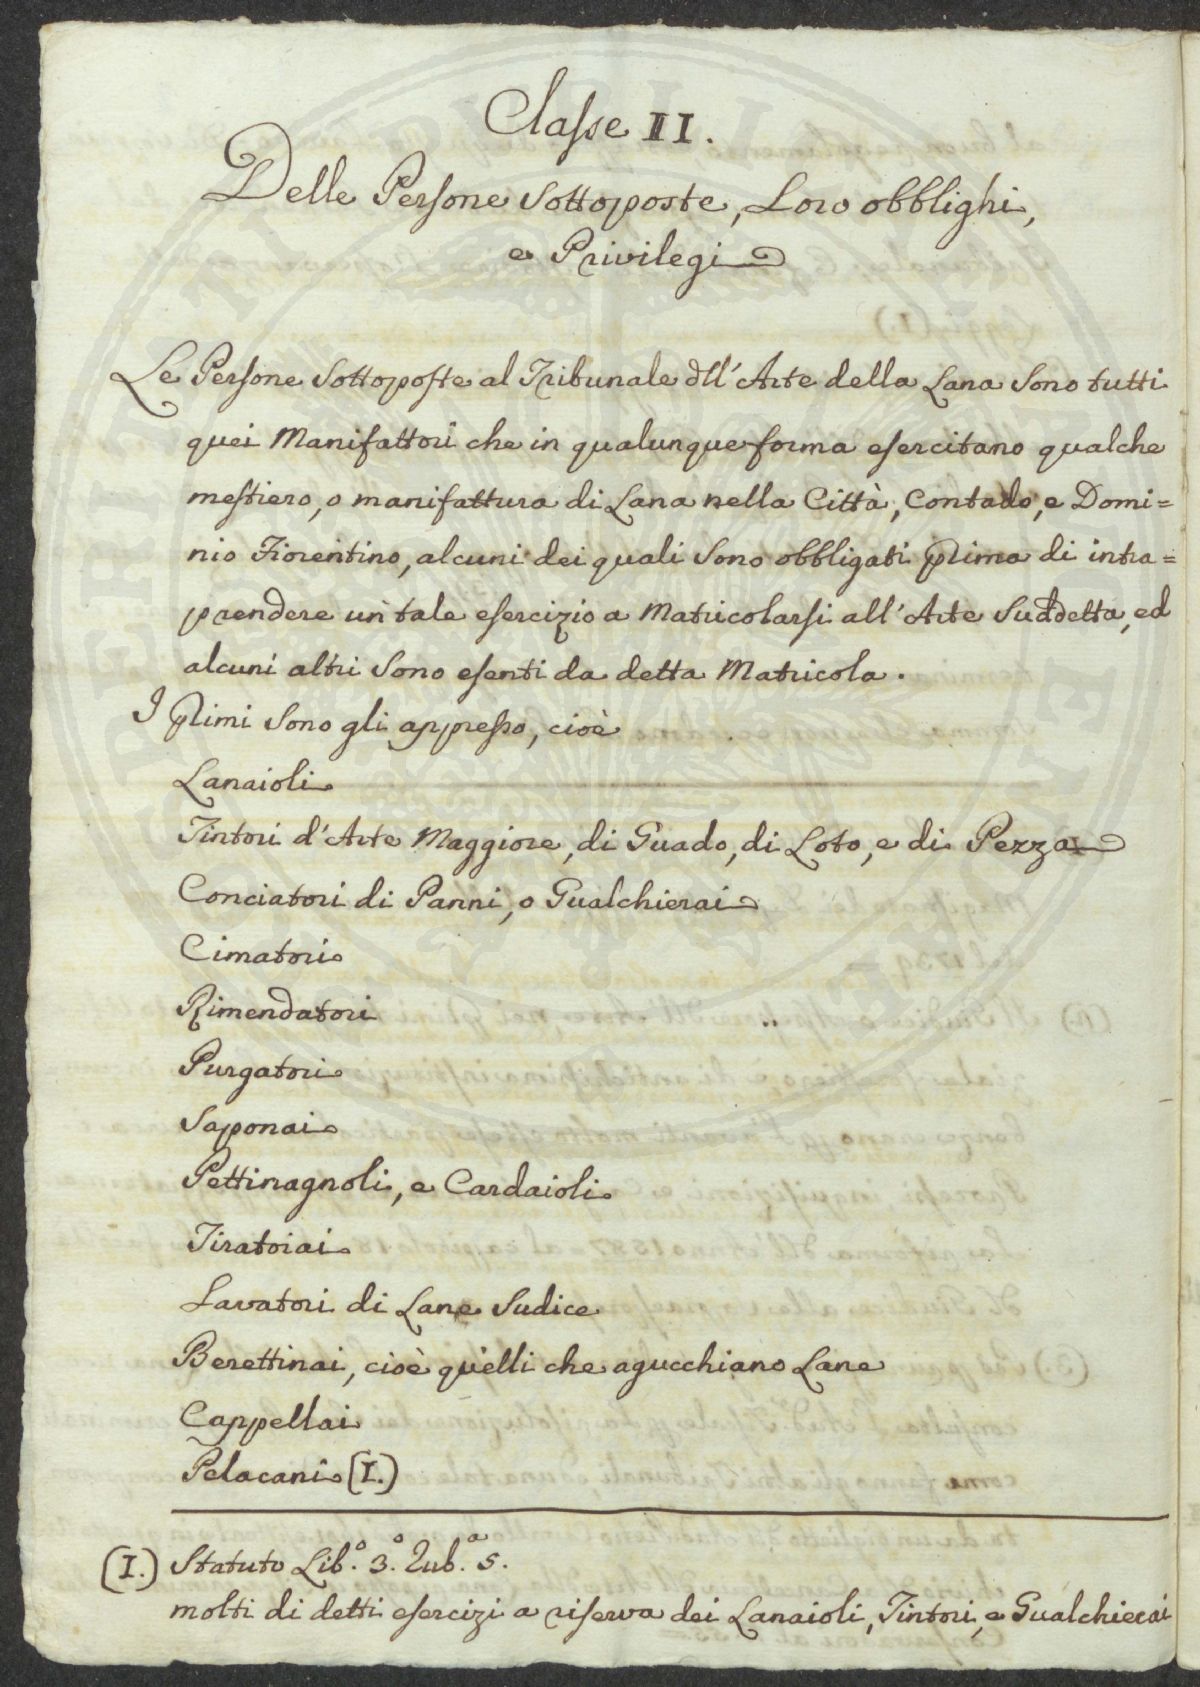 Classe II.
Delle Persone Sottoposte, Loro obblighi,
e Privilegi
Le Persone Sottoposte al Tribunale dll'Arte della Lana Sono tutti
quei Manifattori che in qualunque forma esercitano qualche
mestiero, o manifattura di Lana nella Città, Contado, e Domi=
nio Fiorentino, alcuni dei quali Sono obbligati prima di intra=
prendere un tale esercizio a Matricolarsi all'Arte Suddetta, ed
alcuni altri Sono esenti da detta Matricola.
I primi Sono gli appresso, cioè
Lanaioli
Tintori d'Arte Maggiore, di Guado, di Loto, e di Pezza
Conciatori di Panni, o Gualchierai
Cimatori
Rimendatori
Purgatori
Saponai
Pettinagnoli, e Cardaioli
Tiratoiai
Lavatori di Lane Sudice
Berettinai, cioè quelli che agucchiano Lane
Cappellai
Pelacani (I.)
(I.) Statuto Lib.º 3.º Rub.ª 5.
molti di detti esercizi a riserva dei Lanaioli, Tintori, e Gualchierai